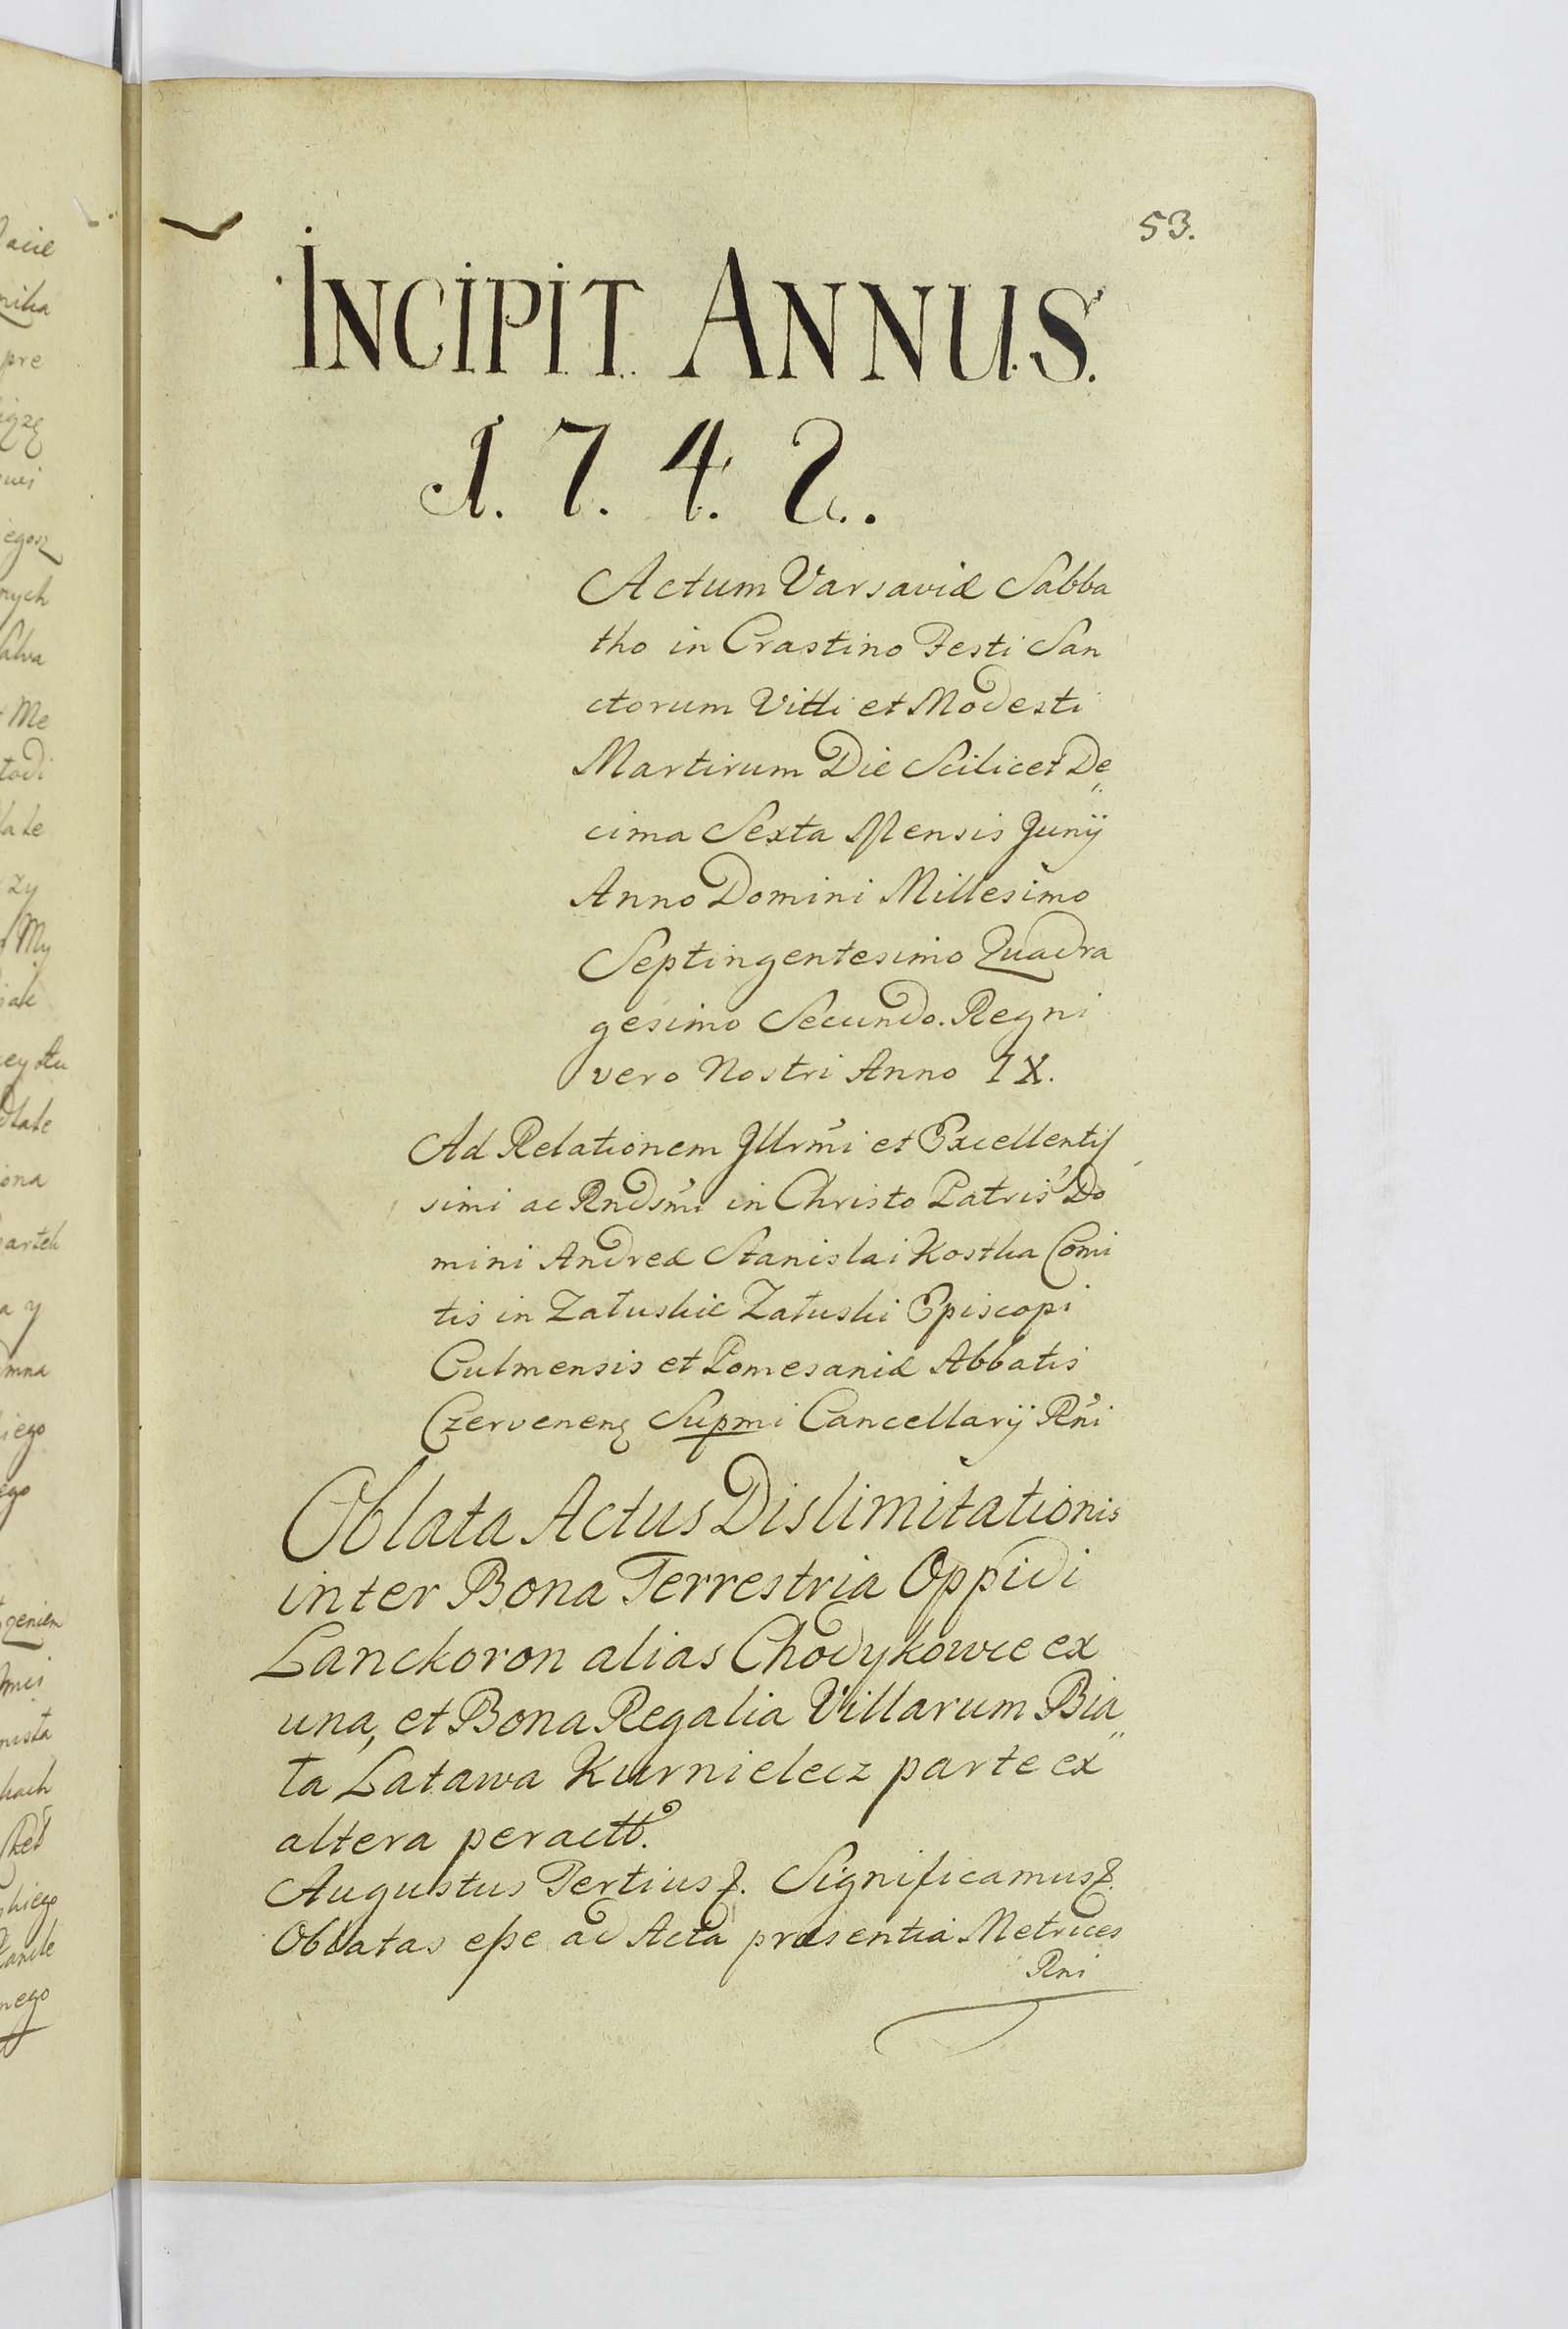 53.
INCIPIT ANNUS.
1. 7. 4. 2.
Actum Varsaviæ Sabba
tho in Crastino Festi San
ctorum Vitti et Modesti
Martirum Die Scilicet De„
cima Sexta Mensis Junÿ
Anno Domini Millesimo
Septingentesimo Quadra
gesimo Secundo. Regni
vero Nostri Anno IX.
Ad Relationem Jllrmi et Excellentis
simi ac Rndsmi in Christo Patris Do
mini Andreæ Stanislai Kostka Comi
tis in Załuskie Załuski Episcopi
Culmensis et Pomesaniæ Abbatis
Czervenenę Supmi Cancellarÿ Rni
Oblata Actus Dislimitationis
inter Bona Terrestria Oppidi
Lanckoron alias Chodykowce ex
una, et Bona Regalia Villarum Bia„
ła Łatawa Kurnielecz parte ex
altera peractt.
Augustus Tertius ꝛ. Significamus ꝛ.
Oblatas eße ad Acta præsentia Metrices
Rni